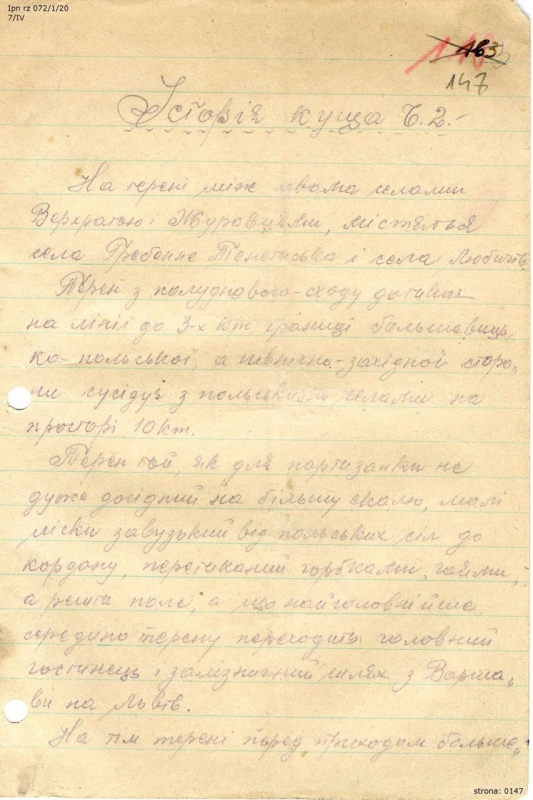 Ipn rz 072/1/20
7/IV
163
147
Історія куща Ч.2.-
На терені між двома селами
Верхратою і Журавцями, містяться
села Гребенне Тенетиська і села Любичів.
Терен з полуднового-сходу дотикає
на лінії до 3-х км. границі большевиць„
ко-польської, а північно-західної сторо„
ни сусідує з польськими селами на
просторі 10 км.
Терен той, як для партизанки не
дуже догідний на більшу скалю, малі
ліски завузький від польських сіл до
кордону, перетиканий горбками, гаями,
а решта поле, а що найголовніше,
серединою терену переходить головний
гостинець і залізничний шлях з Варша„
ви на Львів.
На тім терені перед приходом больше„
strona: 0147